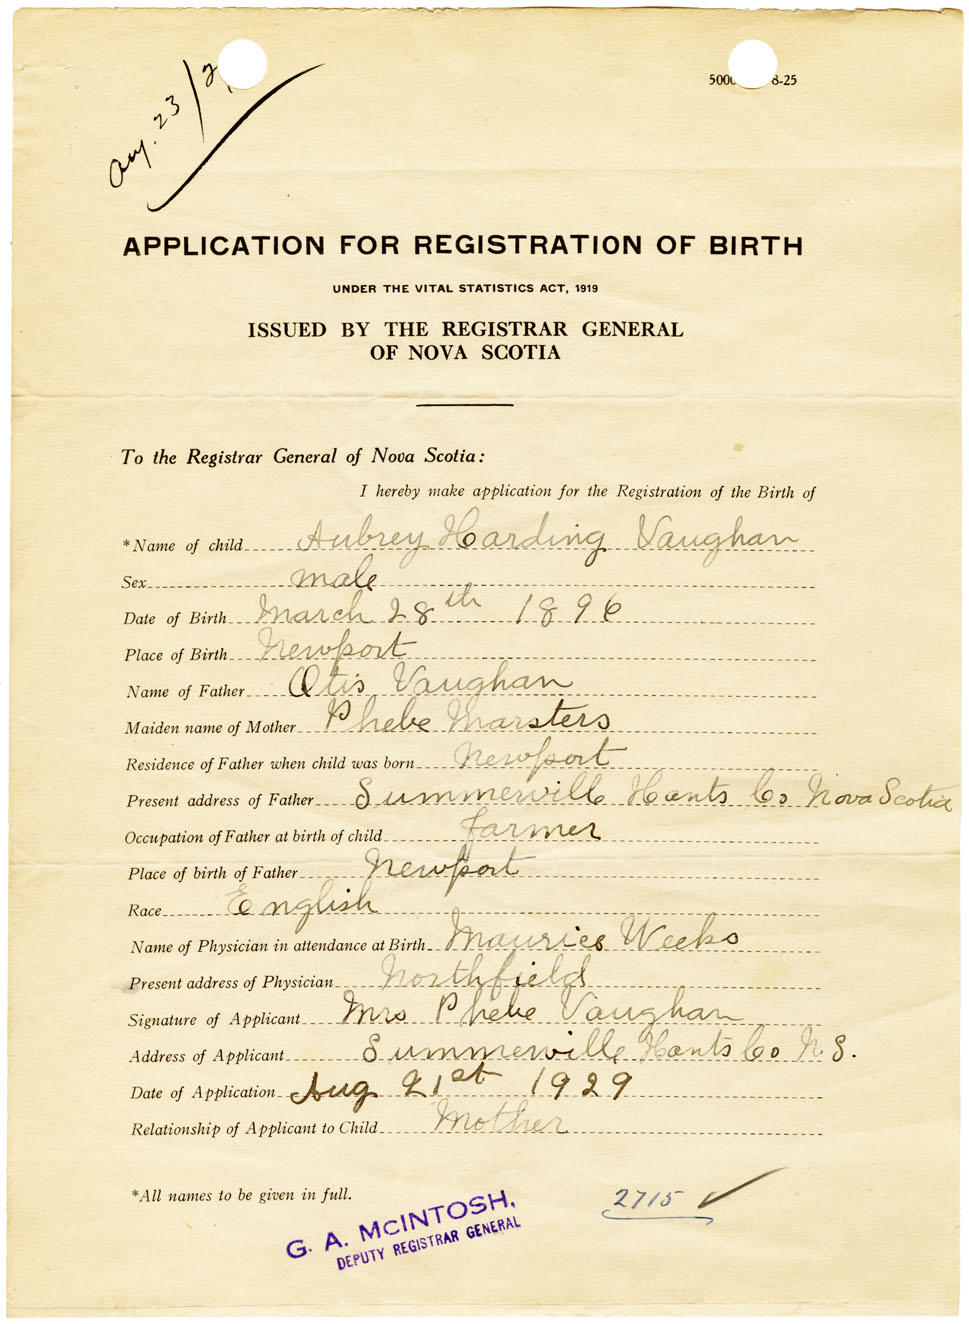 Aug. 23/2
500 8-25
APPLICATION FOR REGISTRATION OF BIRTH
UNDER THE VITAL STATISTICS ACT, 1919
ISSUED BY THE REGISTRAR GENERAL
OF NOVA SCOTIA
To the Registrar General of Nova Scotia:
I hereby make application for the Registration of the Birth of
*Name of child Aubrey Harding Vaughan
Sex male
Date of Birth March 28th 1896
Place of Birth Newport
Name of Father Otis Vaughan
Maiden name of Mother Phebe Marsters
Residence of Father when child was born Newport
Present address of Father Summerville Hants Co Nova Scotia
Occupation of Father at birth of child farmer
Place of birth of Father Newport
Race English
Name of Physician in attendance at Birth Maurice Weeks
Present address of Physician Northfield
Signature of Applicant Mrs Phebe Vaughan
Address of Applicant Summerville Hants Co N.S.
Date of Application Aug 21st 1929
Relationship of Applicant to Child Mother
*All names to be given in full.
2715 ✓
G. A. McINTOSH,
DEPUTY REGISTRAR GENERAL